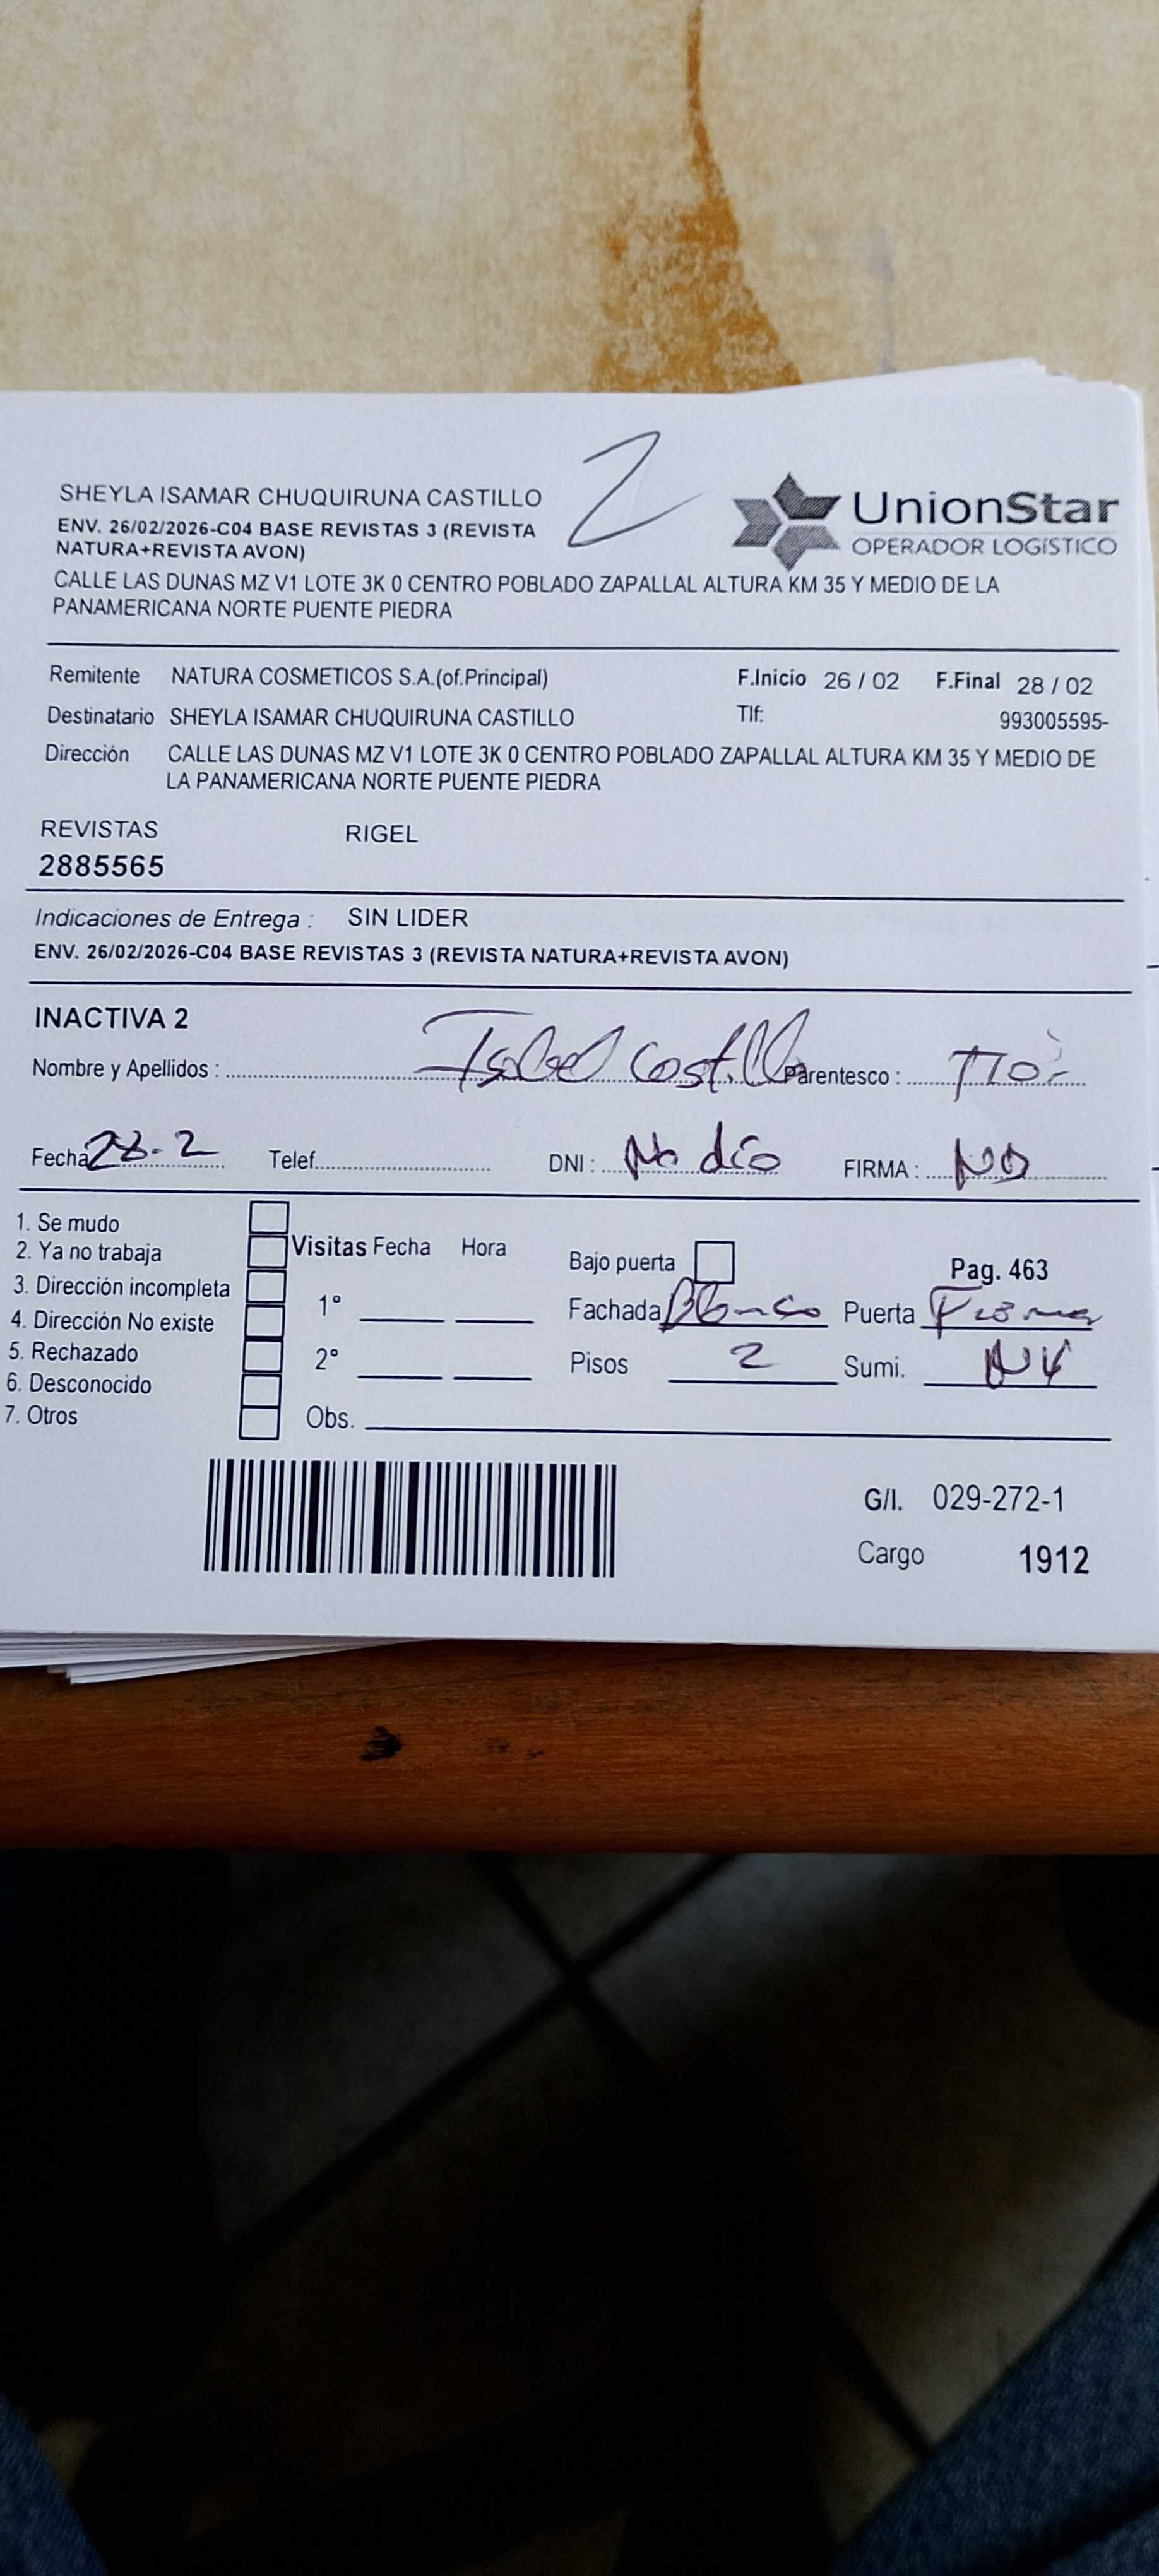 2
SHEYLA ISAMAR CHUQUIRUNA CASTILLO
ENV. 26/02/2026-C04 BASE REVISTAS 3 (REVISTA
NATURA+REVISTA AVON)
UnionStar
OPERADOR LOGÍSTICO
CALLE LAS DUNAS MZ V1 LOTE 3K 0 CENTRO POBLADO ZAPALLAL ALTURA KM 35 Y MEDIO DE LA
PANAMERICANA NORTE PUENTE PIEDRA
Remitente NATURA COSMETICOS S.A.(of.Principal) F.Inicio 26 / 02 F.Final 28 / 02
Destinatario SHEYLA ISAMAR CHUQUIRUNA CASTILLO Tlf: 993005595-
Dirección CALLE LAS DUNAS MZ V1 LOTE 3K 0 CENTRO POBLADO ZAPALLAL ALTURA KM 35 Y MEDIO DE
LA PANAMERICANA NORTE PUENTE PIEDRA
REVISTAS RIGEL
2885565
Indicaciones de Entrega : SIN LIDER
ENV. 26/02/2026-C04 BASE REVISTAS 3 (REVISTA NATURA+REVISTA AVON)
INACTIVA 2
Nombre y Apellidos : Isabel Castillo Parentesco :
Fecha 28-2 Telef. DNI : No dio FIRMA : NO
1. Se mudo
2. Ya no trabaja
3. Dirección incompleta
4. Dirección No existe
5. Rechazado
6. Desconocido
7. Otros
Visitas Fecha Hora
1°
2°
Obs.
Bajo puerta Pag. 463
Fachada Blanco Puerta
Pisos 2 Sumi. NV
G/I. 029-272-1
Cargo 1912